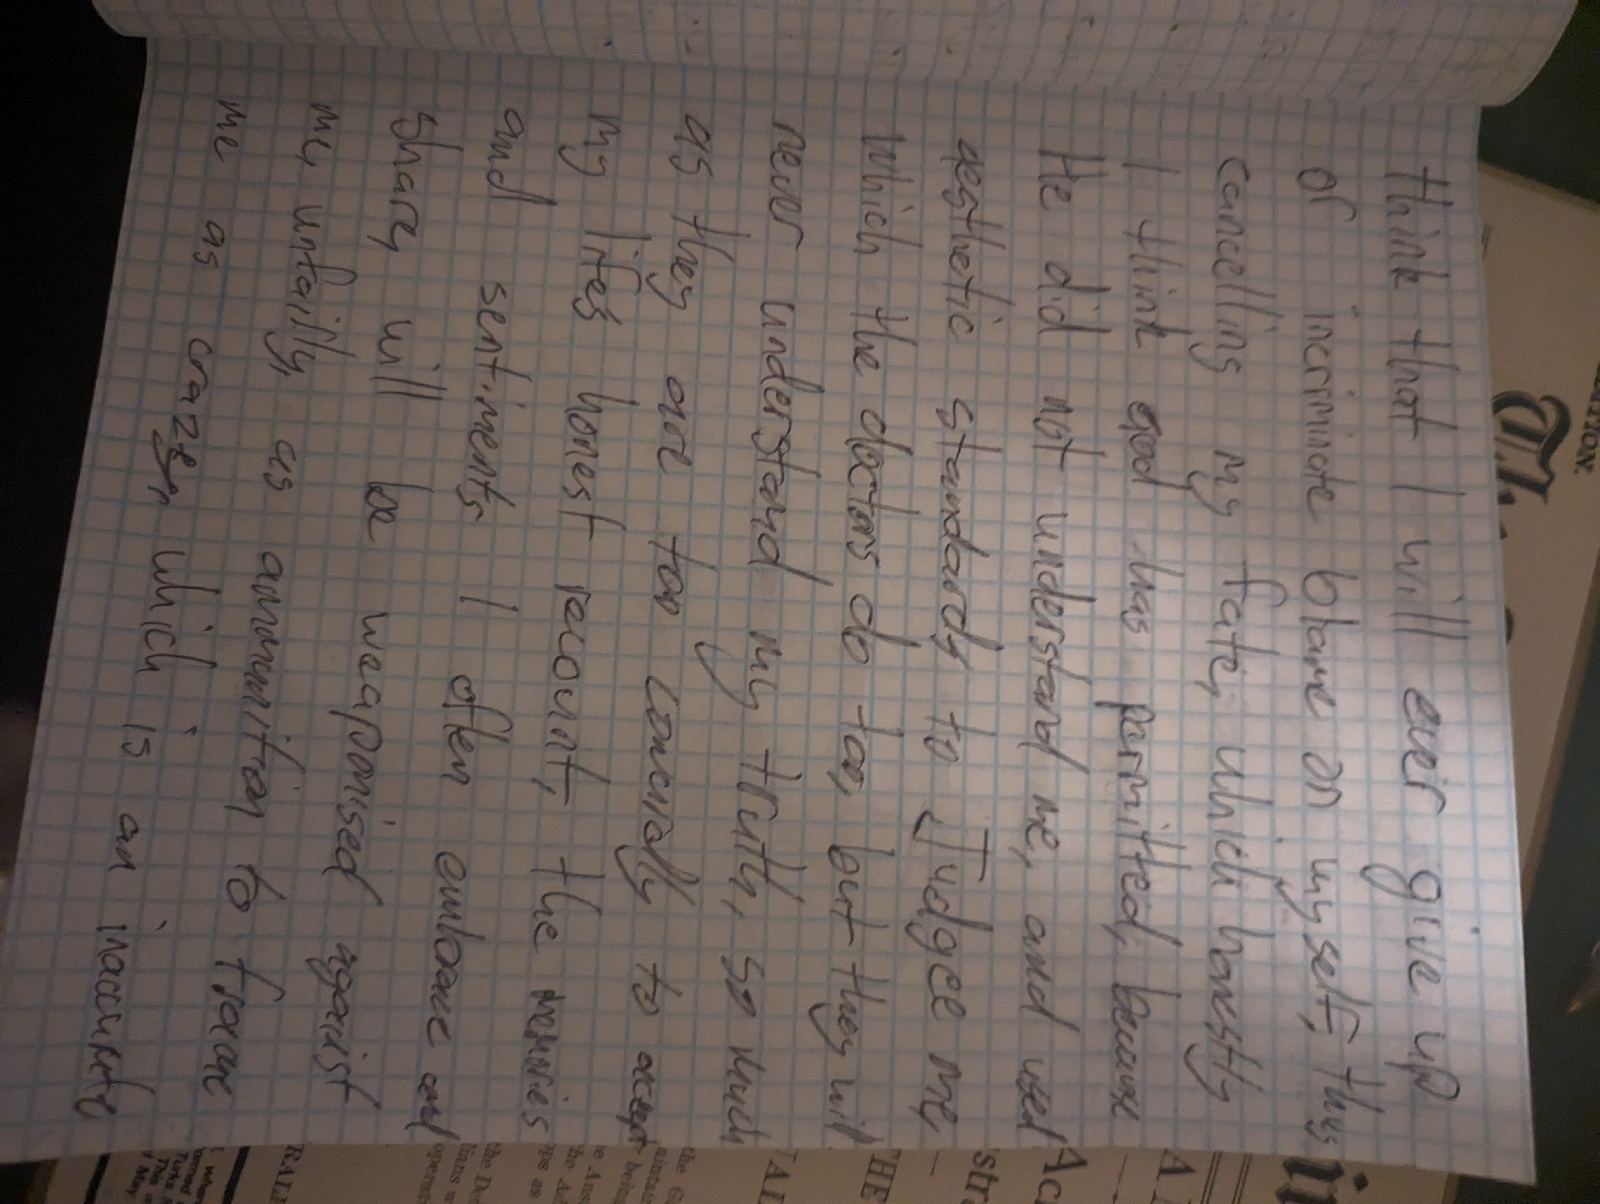 think that I will ever give up
or incriminate blame on myself, thus
cancelling my fate, which honestly
I think god has permitted, because
He did not understand me, and used
aesthetic standards to Judge me,
which the doctors do too, but they will
never understand my truth, so much
as they are too cowardly to accept
my lifes honest recount, the memories
and sentiments I often embrace and
share, will be weaponised against
me, unfairly, as ammunition to frame
me as crazy, which is an inaccurate